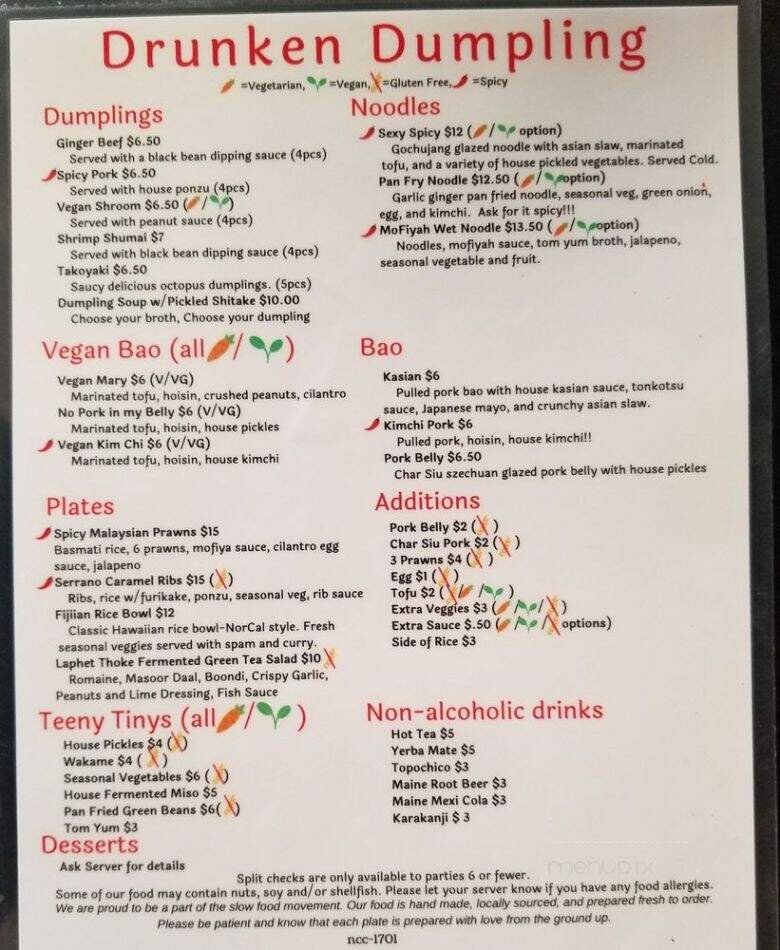 Drunken Dumpling
=Vegetarian, =Vegan, =Gluten Free, =Spicy
Dumplings
Ginger Beef $6.50
Served with a black bean dipping sauce (4pcs)
Spicy Pork $6.50
Served with house ponzu (4pcs)
Vegan Shroom $6.50 ( / )
Served with peanut sauce (4pcs)
Shrimp Shumai $7
Served with black bean dipping sauce (4pcs)
Takoyaki $6.50
Saucy delicious octopus dumplings. (5pcs)
Dumpling Soup w/Pickled Shitake $10.00
Choose your broth, Choose your dumpling
Noodles
Sexy Spicy $12 ( / option)
Gochujang glazed noodle with asian slaw, marinated
tofu, and a variety of house pickled vegetables. Served Cold.
Pan Fry Noodle $12.50 ( / option)
Garlic ginger pan fried noodle, seasonal veg, green onion,
egg, and kimchi. Ask for it spicy!!!
MoFiyah Wet Noodle $13.50 ( / option)
Noodles, mofiyah sauce, tom yum broth, jalapeno,
seasonal vegetable and fruit.
Vegan Bao (all / )
Vegan Mary $6 (V/VG)
Marinated tofu, hoisin, crushed peanuts, cilantro
No Pork in my Belly $6 (V/VG)
Marinated tofu, hoisin, house pickles
Vegan Kim Chi $6 (V/VG)
Marinated tofu, hoisin, house kimchi
Bao
Kasian $6
Pulled pork bao with house kasian sauce, tonkotsu
sauce, Japanese mayo, and crunchy asian slaw.
Kimchi Pork $6
Pulled pork, hoisin, house kimchi!!
Pork Belly $6.50
Char Siu szechuan glazed pork belly with house pickles
Plates
Spicy Malaysian Prawns $15
Basmati rice, 6 prawns, mofiya sauce, cilantro egg
sauce, jalapeno
Serrano Caramel Ribs $15 ( )
Ribs, rice w/furikake, ponzu, seasonal veg, rib sauce
Fijiian Rice Bowl $12
Classic Hawaiian rice bowl-NorCal style. Fresh
seasonal veggies served with spam and curry.
Laphet Thoke Fermented Green Tea Salad $10
Romaine, Masoor Daal, Boondi, Crispy Garlic,
Peanuts and Lime Dressing, Fish Sauce
Additions
Pork Belly $2 ( )
Char Siu Pork $2 ( )
3 Prawns $4 ( )
Egg $1 ( )
Tofu $2 ( / / )
Extra Veggies $3 ( / / )
Extra Sauce $.50 ( / / options)
Side of Rice $3
Teeny Tinys (all / )
House Pickles $4 ( )
Wakame $4 ( )
Seasonal Vegetables $6 ( )
House Fermented Miso $5
Pan Fried Green Beans $6( )
Tom Yum $3
Non-alcoholic drinks
Hot Tea $5
Yerba Mate $5
Topochico $3
Maine Root Beer $3
Maine Mexi Cola $3
Karakanji $ 3
Desserts
Ask Server for details
Split checks are only available to parties 6 or fewer.
Some of our food may contain nuts, soy and/or shellfish. Please let your server know if you have any food allergies.
We are proud to be a part of the slow food movement. Our food is hand made, locally sourced, and prepared fresh to order.
Please be patient and know that each plate is prepared with love from the ground up.
ncc-1701
menupix